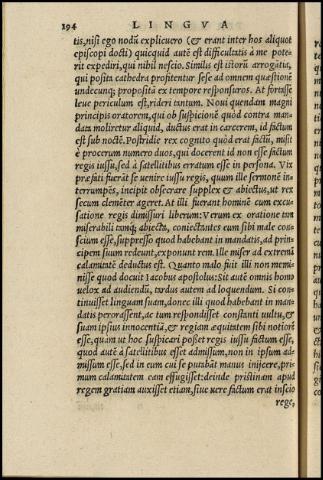 194 LINGVA
tis, nisi ego nodū explicuero (& erant inter hos aliquot
episcopi docti) quicquid autē est difficultatis à me pote-
rit expediri, qui nihil nescio. Similis est istorū arrogātia,
qui posita cathedra profitentur sese ad omnem quæstionē
undecunq; proposita ex tempore responsuros. At fortasse
leue periculum est, rideri tantum. Noui quendam magni
principis oratorem, qui ob suspicionē quòd contra man-
data moliretur aliquid, ductus erat in carcerem, id factum
est sub noctē. Postridie rex cognito quod erat factū, misit
è procerum numero duos, qui docerent id non esse factum
regis iussu, sed à satellitibus erratum esse in persona. Vix
præfati fuerāt se uenire iussu regis, quum ille sermonē in-
terrumpēs, incipit obsecrare supplex & abiectus, ut rex
secum clemēter ageret. At illi fuerant hominē cum excu-
satione regis dimissuri liberum: Verum ex oratione tam
miserabili tamq; abiecta, coniectantes eum sibi male con-
scium esse, suppresso quod habebant in mandatis, ad prin-
cipem suum redeunt, exponunt rem. Ille miser ad extremā
calamitatē deductus est. Quanto malo fuit illi non memi-
nisse quod docuit Iacobus apostolus: Sit autē omnis homo
uelox ad audiendū, tardus autem ad loquendum. Si con-
tinuisset linguam suam, donec illi quod habebant in man-
datis perorassent, ac tum respondisset constanti uultu, &
suam ipsius innocentiā, & regiam æquitatem sibi notiorē
esse, quàm ut hoc suspicari posset regis iussu factum esse,
quod autē à satellitibus esset admissum, non in ipsum ad-
missum esse, sed in eum cui se putabāt manus inijcere, pri-
mum calamitatem eam effugisset: deinde pristinam apud
regem gratiam auxisset etiam, siue uere factum erat inscio
rege,